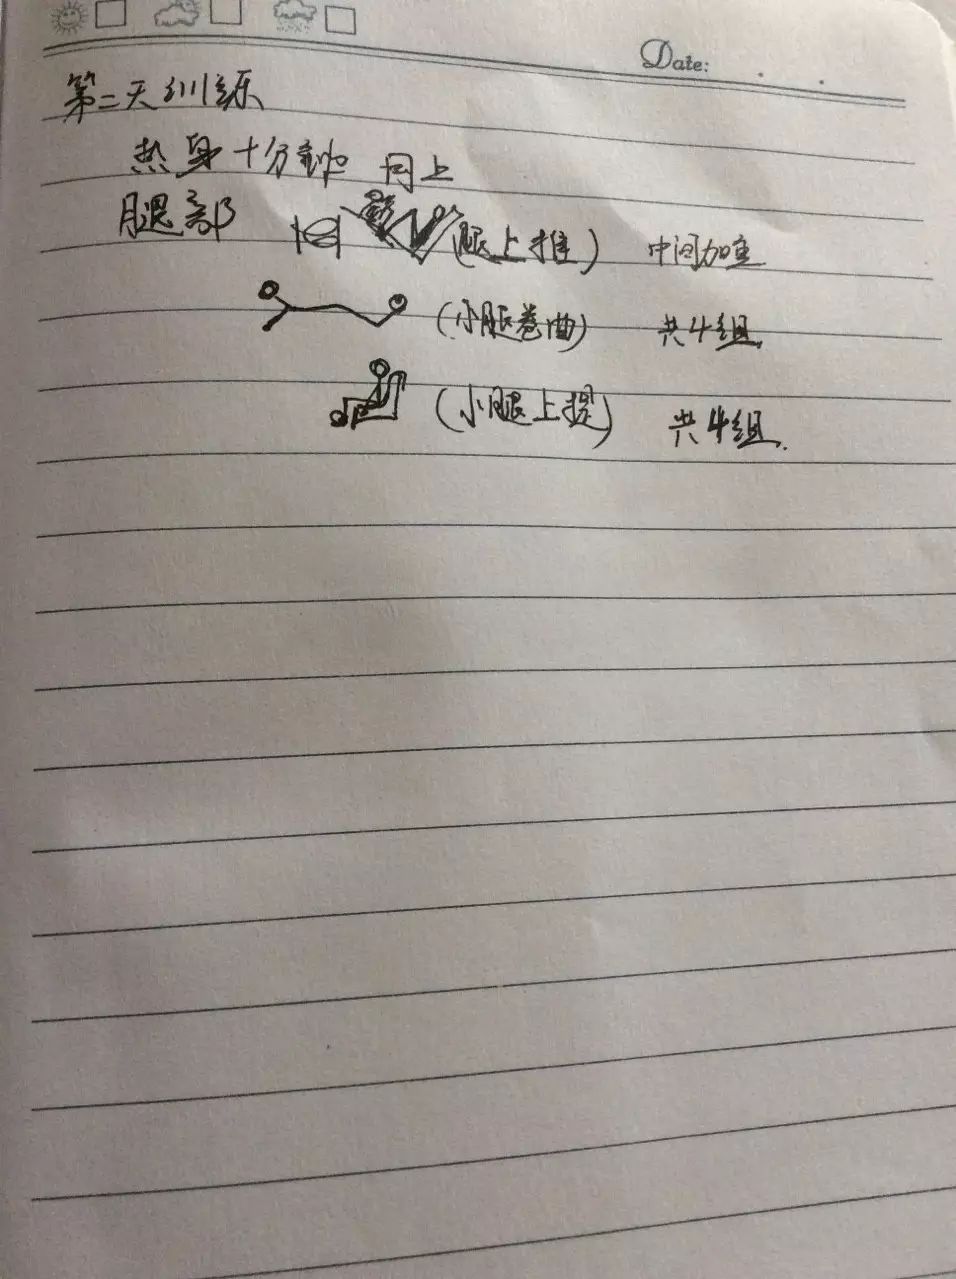 Date:
第二天训练
热身十分钟 同上
腿部 (腿上推) 中间加重
(小腿卷曲) 共4组
(小腿上提) 共4组.